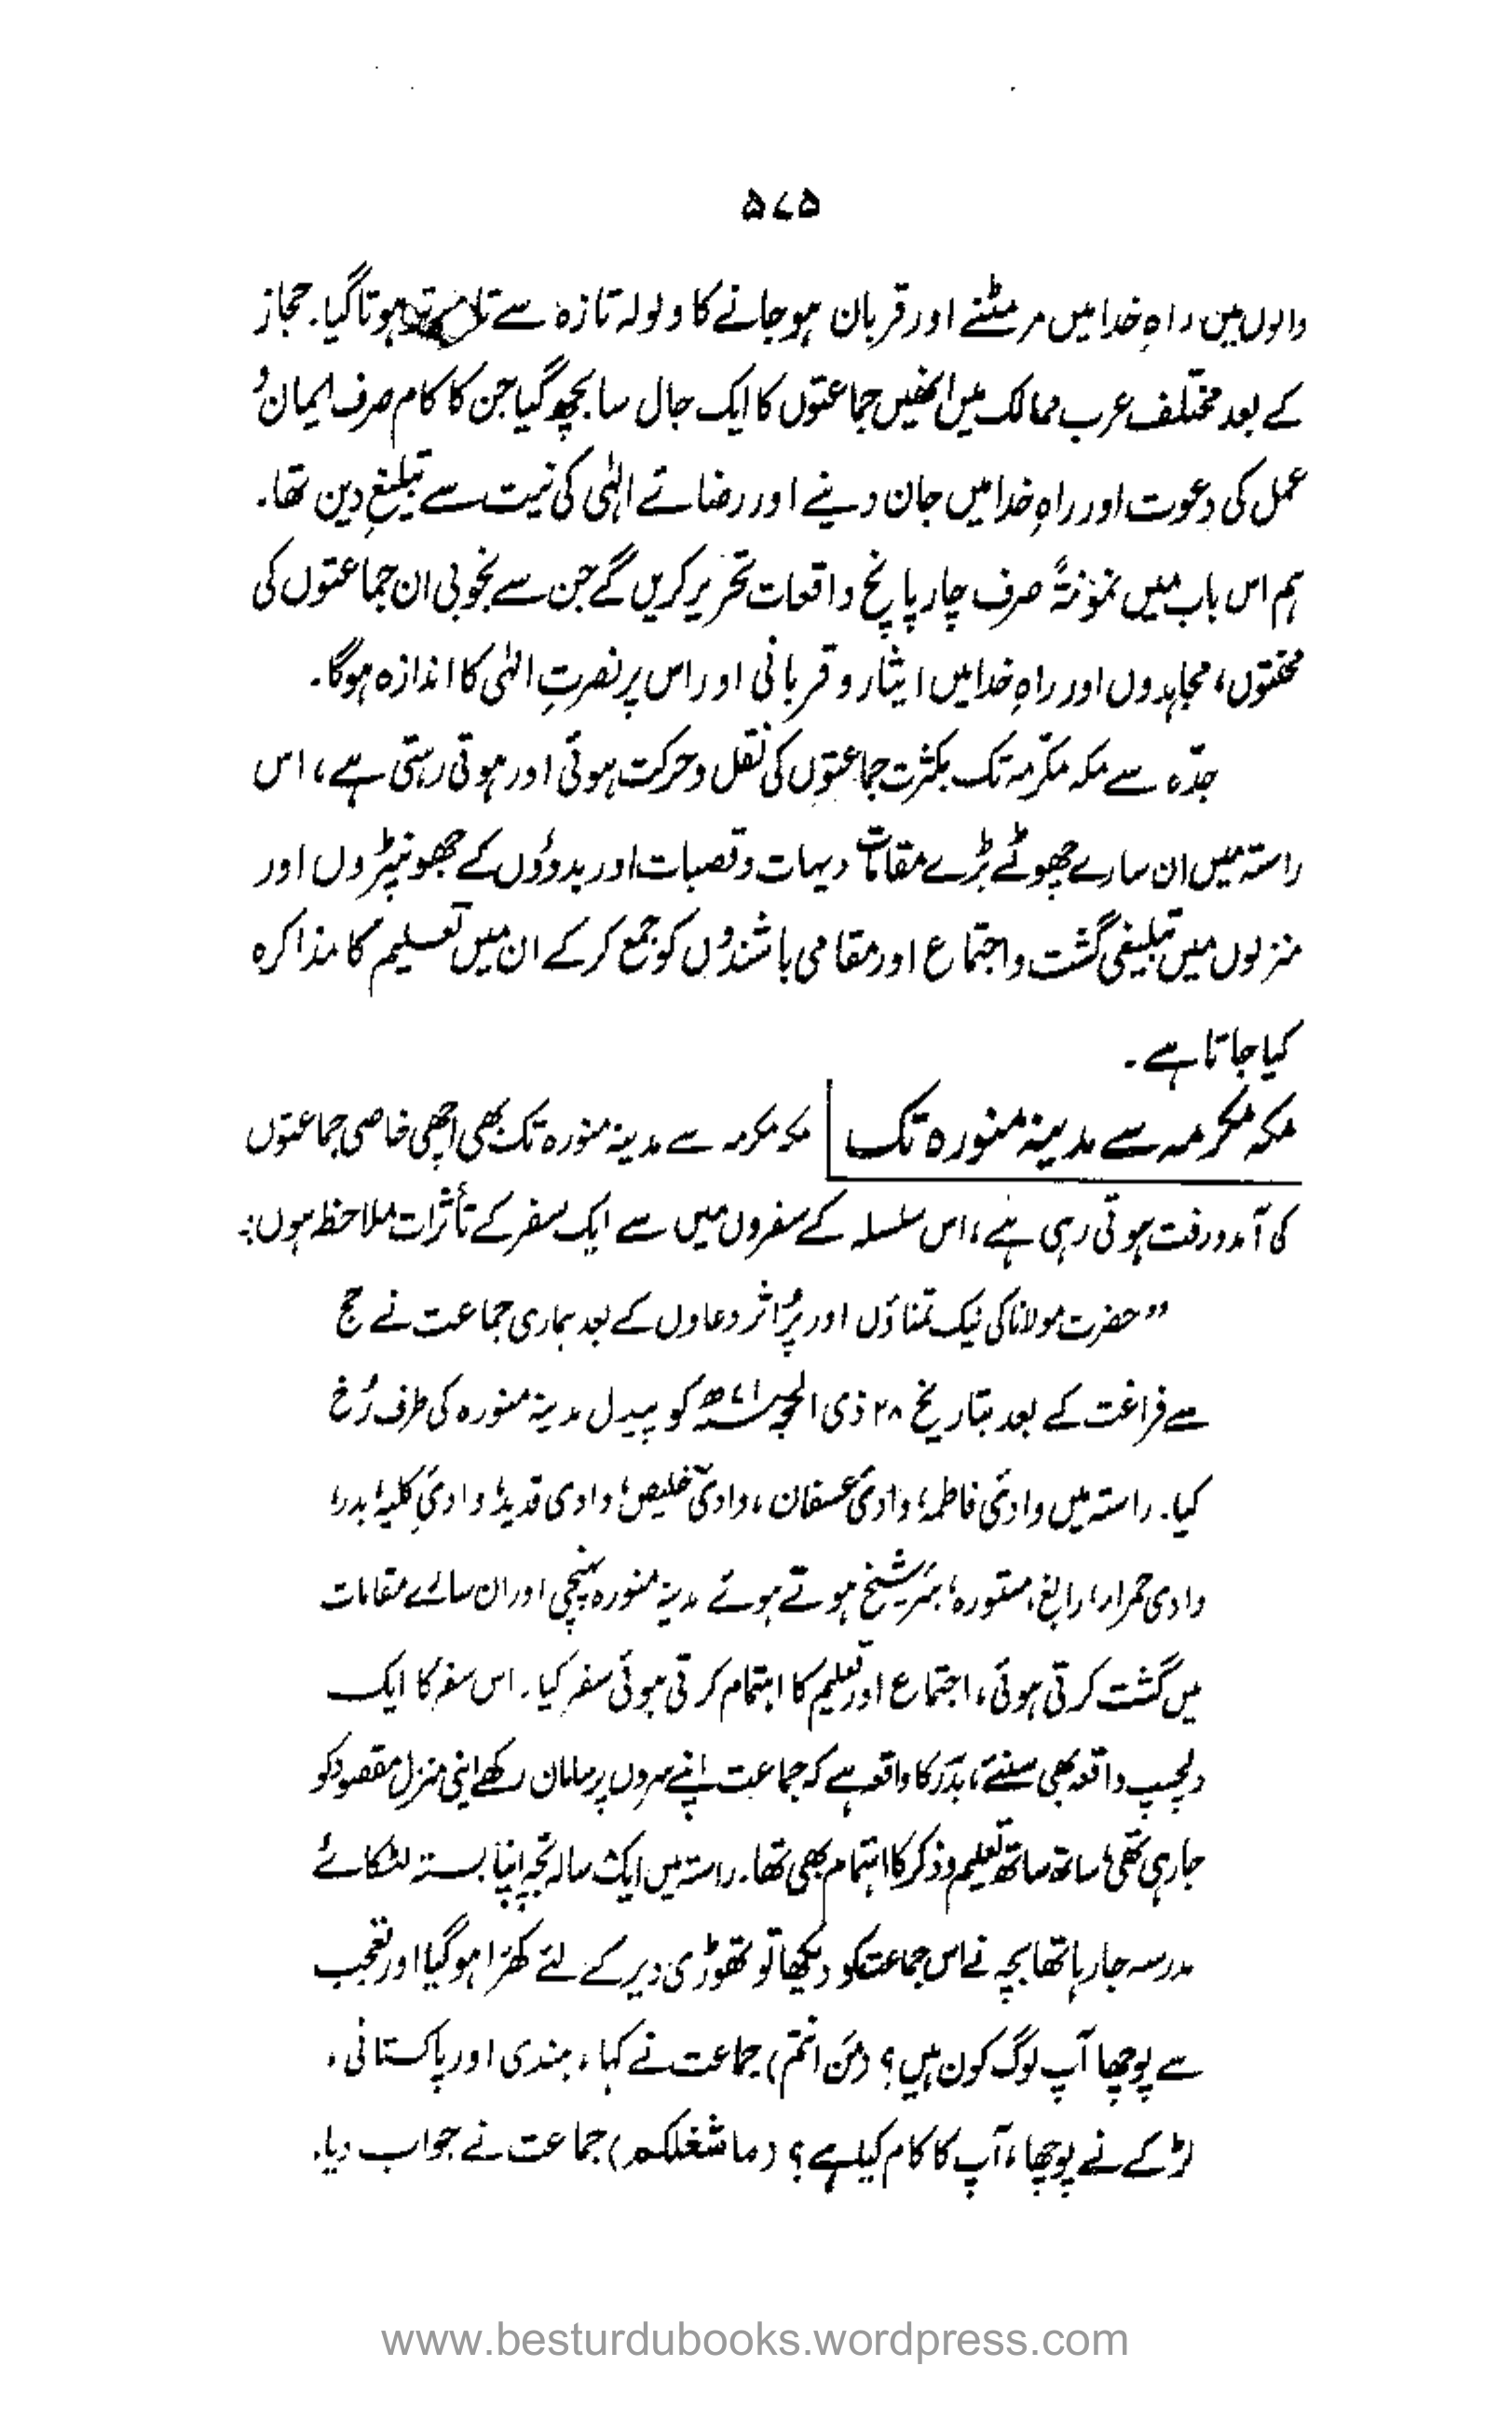 ۵۷۵
والوں میں راہِ خدا میں مر مٹنے اور قربان ہو جانے کا ولولہ تازہ سے ہوتا گیا۔ حجاز
کے بعد مختلف عرب ممالک میں انھیں جماعتوں کا ایک جال سا بچھ گیا جن کا کام صرف ایمان و
عمل کی دعوت اور راہِ خدا میں جان دینے اور رضائے الٰہی کی نیت سے تبلیغِ دین تھا۔
ہم اس باب میں نمونۃً صرف چار پانچ واقعات تحریر کریں گے جن سے بخوبی ان جماعتوں کی
محنتوں، مجاہدوں اور راہِ خدا میں ایثار و قربانی اور اس پر نصرتِ الٰہی کا اندازہ ہوگا۔
جدّہ سے مکہ مکرّمہ تک بکثرت جماعتوں کی نقل و حرکت ہوئی اور ہوتی رہتی ہے، اس
راستہ میں ان سارے چھوٹے بڑے مقامات دیہات و قصبات اور بدوؤں کے جھونپڑوں اور
منزلوں میں تبلیغی گشت و اجتماع اور مقامی باشندوں کو جمع کر کے ان میں تعلیم کا مذاکرہ
کیا جاتا ہے۔
مکہ مکرمہ سے مدینہ منورہ تک مکہ مکرمہ سے مدینہ منورہ تک بھی اچھی خاصی جماعتوں
کی آمد و رفت ہوتی رہی ہے، اس سلسلہ کے سفروں میں سے ایک سفر کے تأثرات ملاحظہ ہوں:
”حضرت مولانا کی نیک تمناؤں اور پُر اثر دعاوں کے بعد ہماری جماعت نے حج
سے فراغت کے بعد بتاریخ ۲۸ ذی الحجہ کو پیدل مدینہ منورہ کی طرف رُخ
کیا۔ راستہ میں وادیٔ فاطمہ، وادیٔ عسفان، وادیٔ خلیص، وادی قدید، وادیٔ کلیہ، بدر،
وادی حمراء، رابغ، مستورہ، بئر شیخ ہوتے ہوئے مدینہ منورہ پہنچی اور ان سارے مقامات
میں گشت کرتی ہوئی، اجتماع اور تعلیم کا اہتمام کرتی ہوئی سفر کیا۔ اس سفر کا ایک
دلچسپ واقعہ بھی سنئے، بدر کا واقعہ ہے کہ جماعت اپنے سروں پر سامان رکھے اپنی منزل مقصود کو
جا رہی تھی، ساتھ ساتھ تعلیم و ذکر کا اہتمام بھی تھا۔ راستہ میں ایک سالہ بچہ اپنا بستہ لٹکائے
مدرسہ جا رہا تھا بچہ نے اس جماعت کو دیکھا تو تھوڑی دیر کے لئے کھڑا ہو گیا اور تعجب
سے پوچھا آپ لوگ کون ہیں؟ (مَن انتم) جماعت نے کہا، ہندی اور پاکستانی،
لڑکے نے پوچھا، آپ کا کام کیا ہے؟ (ما شغلکم) جماعت نے جواب دیا۔
www.besturdubooks.wordpress.com